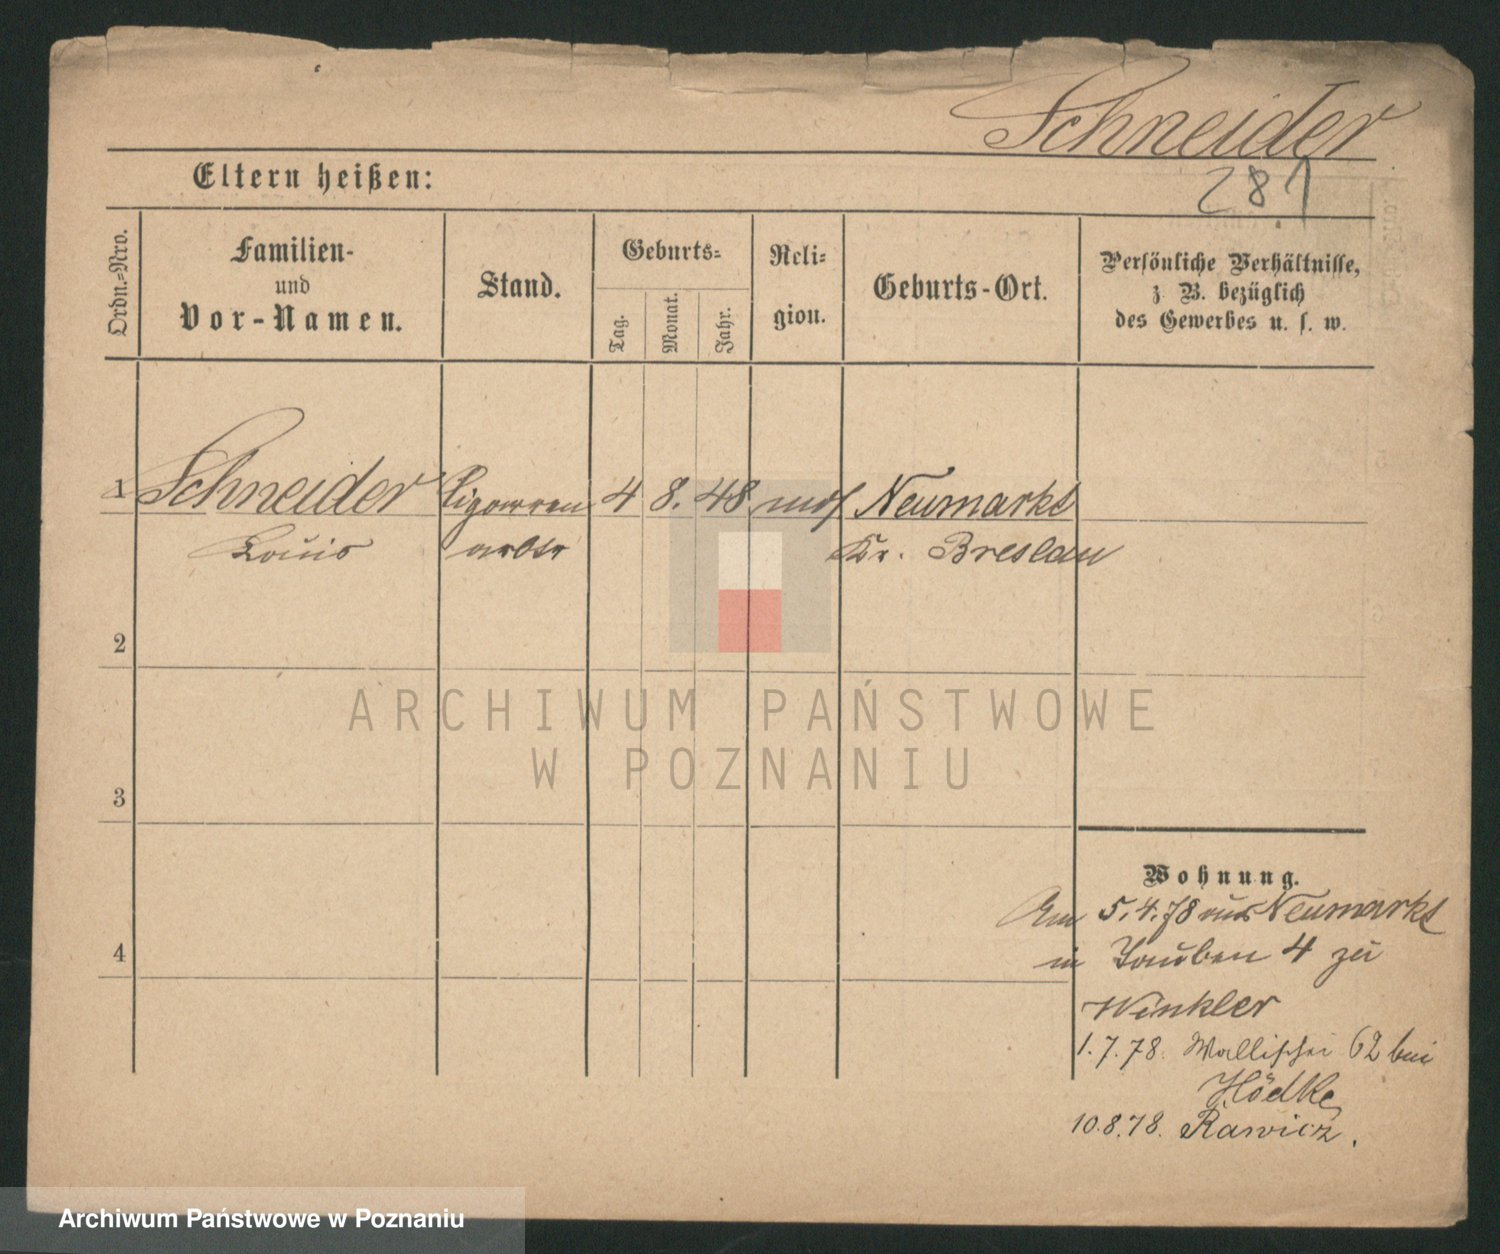 Schneider
281
Eltern heißen:
Ordn.-Nro.
Familien-
und
Vor-Namen.
Stand.
Geburts-
Tag.
Monat.
Jahr.
Reli-
gion.
Geburts-Ort.
Persönliche Verhältnisse,
z. B. bezüglich
des Gewerbes u. s. w.
1 Schneider Cigarren 4 8. 48 mos Neumarkt
Louis arbtr Kr. Breslau
2
3
4
Wohnung.
Am 5.4.78 aus Neumarkt
in Tauben 4 zu
Winkler
1.7.78. Wallischei 62 bei
Hödke
10.8.78. Rawicz.
ARCHIWUM PAŃSTWOWE
W POZNANIU
Archiwum Państwowe w Poznaniu